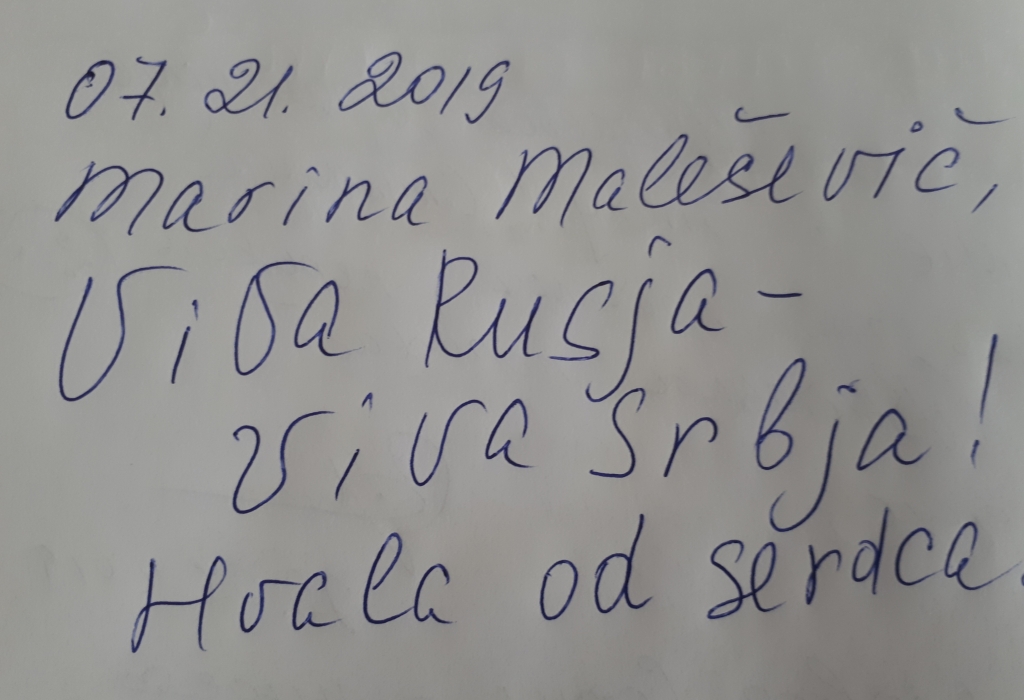 07. 21. 2019
Marina Maleševič,
Viva Rusja -
viva Srbja!
Hvala od serdca.